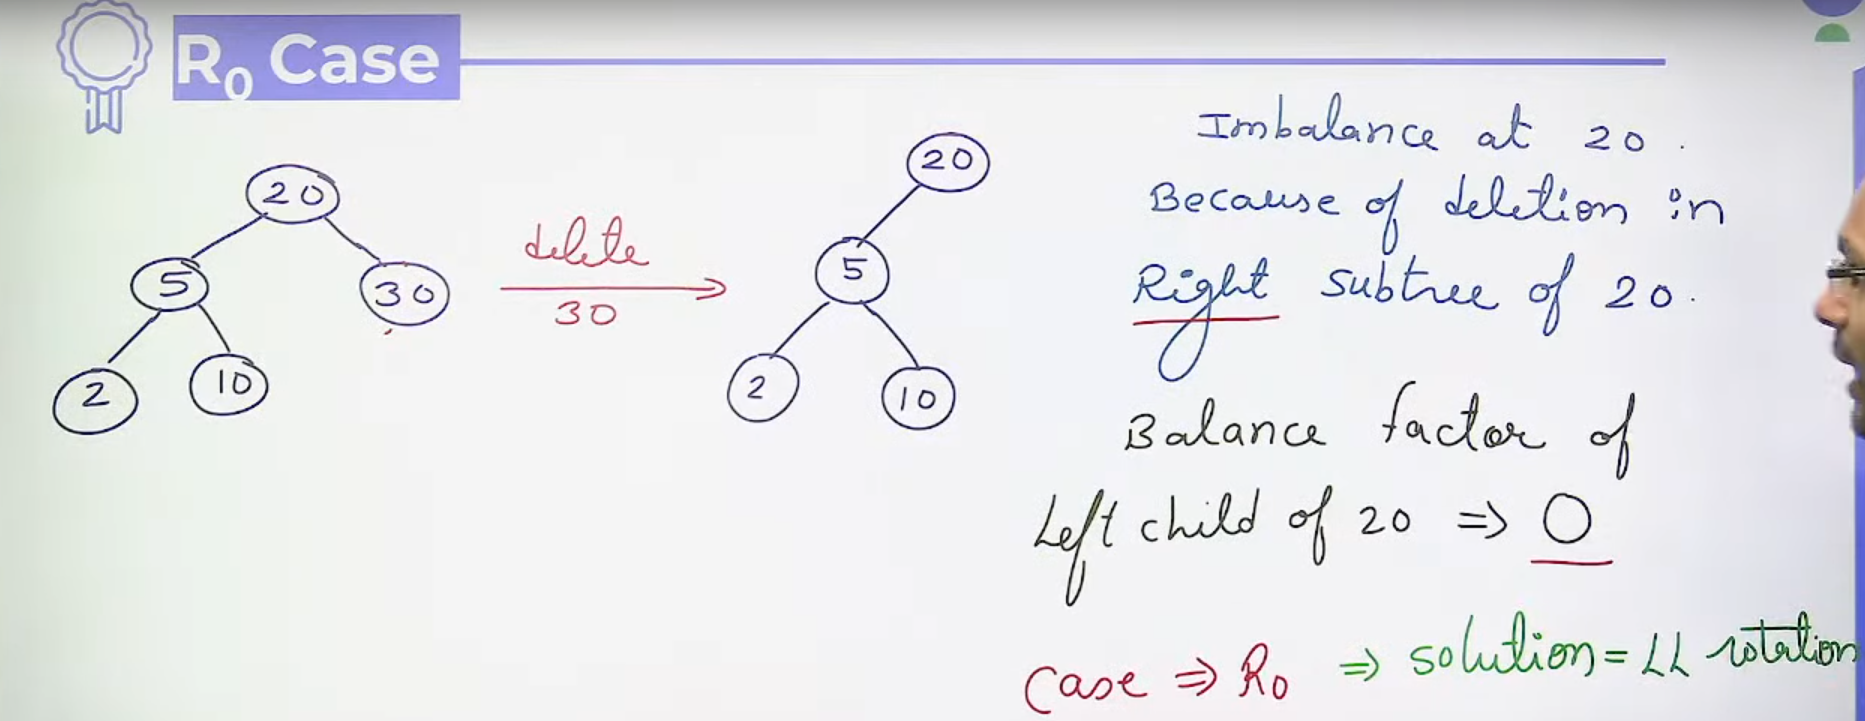 R0 Case
20
5
30
2
10
delete
30
20
5
2
10
Imbalance at 20.
Because of deletion in
Right subtree of 20.
Balance factor of
Left child of 20 => 0
Case => R0 => solution = LL rotation